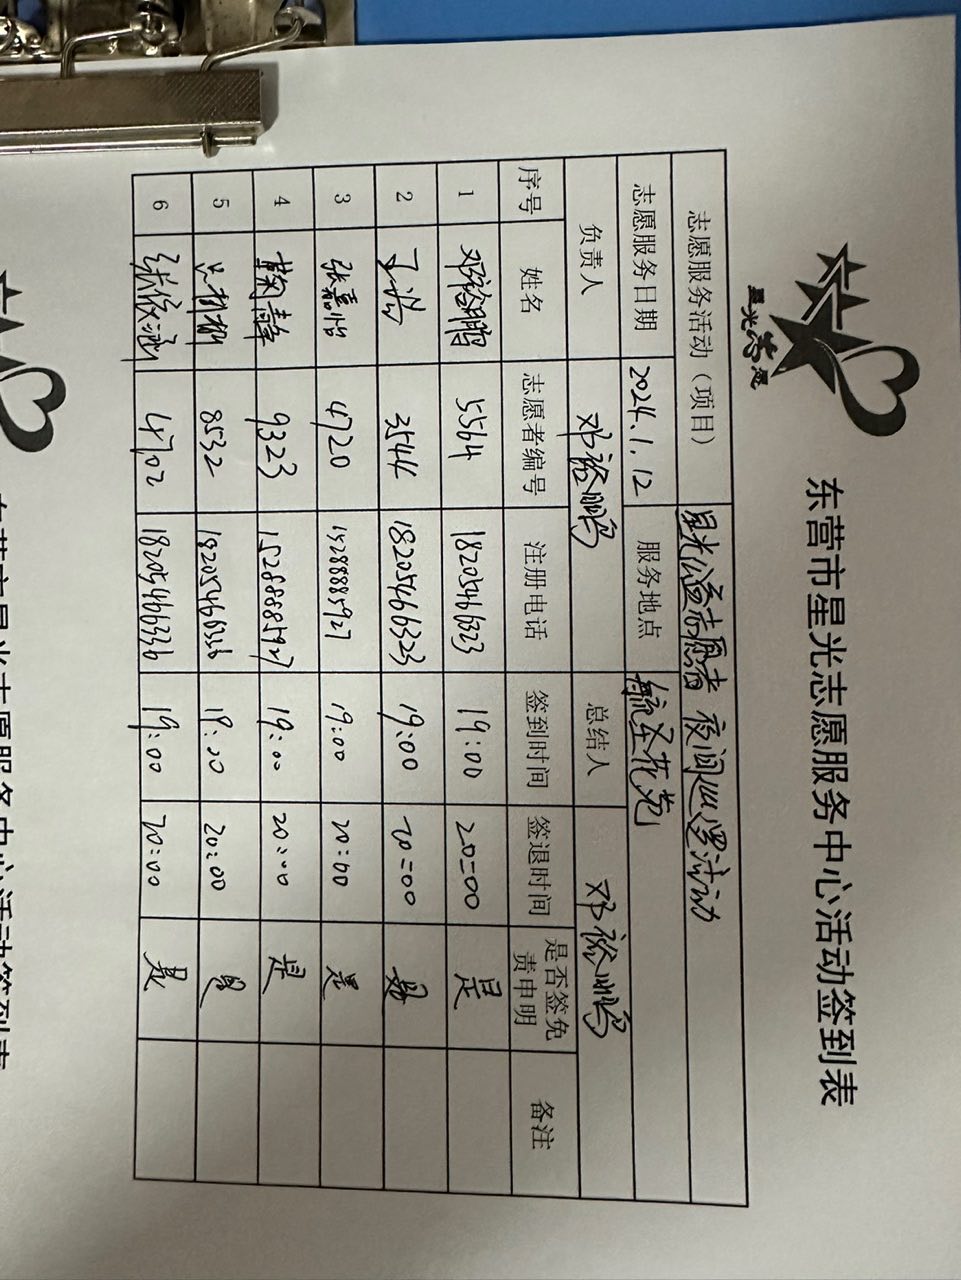 星光志愿
东营市星光志愿服务中心活动签到表
志愿服务活动（项目） 星光公益志愿者 夜间巡逻活动
志愿服务日期 2024.1.12 服务地点
负责人 邓裕鹏 总结人 邓裕鹏
序号 姓名 志愿者编号 注册电话 签到时间 签退时间 是否签免责申明 备注
1 邓裕鹏 5564 18205466323 19:00 20:00 是
2 丁浩 3544 18205466323 19:00 20:00
3 张嘉怡 4720 15288885927 19:00 20:00 是
4 9323 15288885927 19:00 20:00 是
5 8532 19:00 20:00 是
6 4702 18205466336 19:00 20:00 是